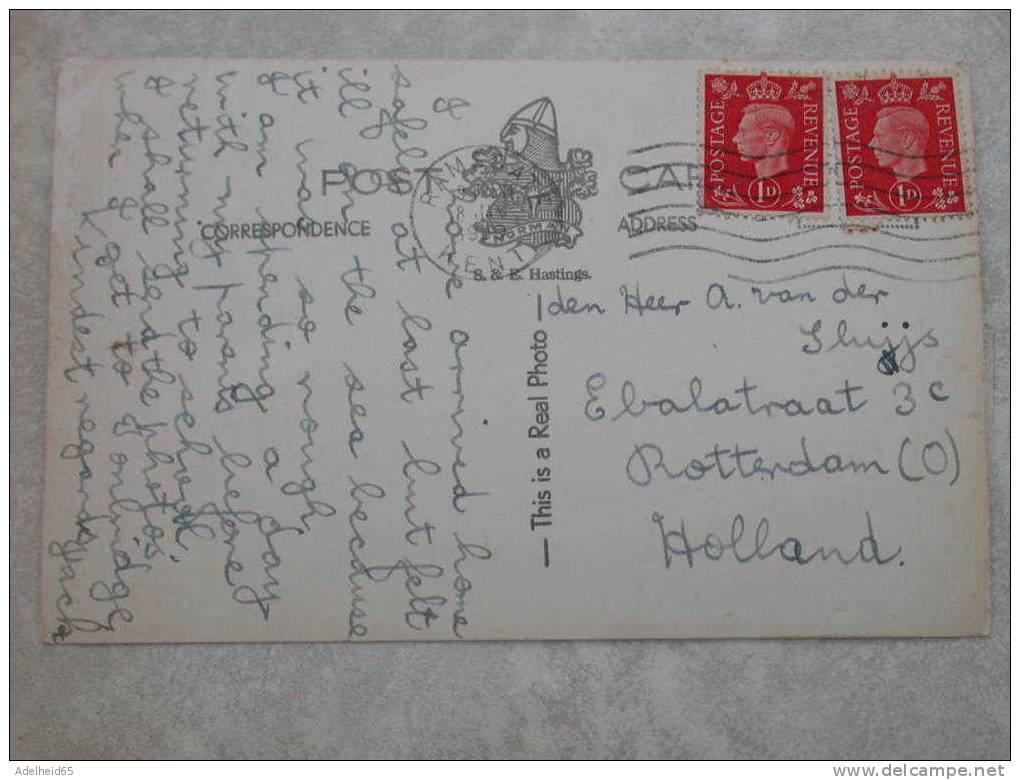 POST CARD
CORRESPONDENCE
ADDRESS
NORMAN
S. & E. Hastings.
— This is a Real Photo —
POSTAGE REVENUE
1D
POSTAGE REVENUE
1D
KENT
I have arrived home
safely at last but felt
ill on the sea because
it was so rough,
I am spending a day
with my parents before
returning to school.
I shall send the photos
when I get to Tonbridge
Kindest regards Jack
den Heer A. van der
Sluijs
Ebalatraat 3c
Rotterdam (O)
Holland.
Adelheid65
delcampe.net